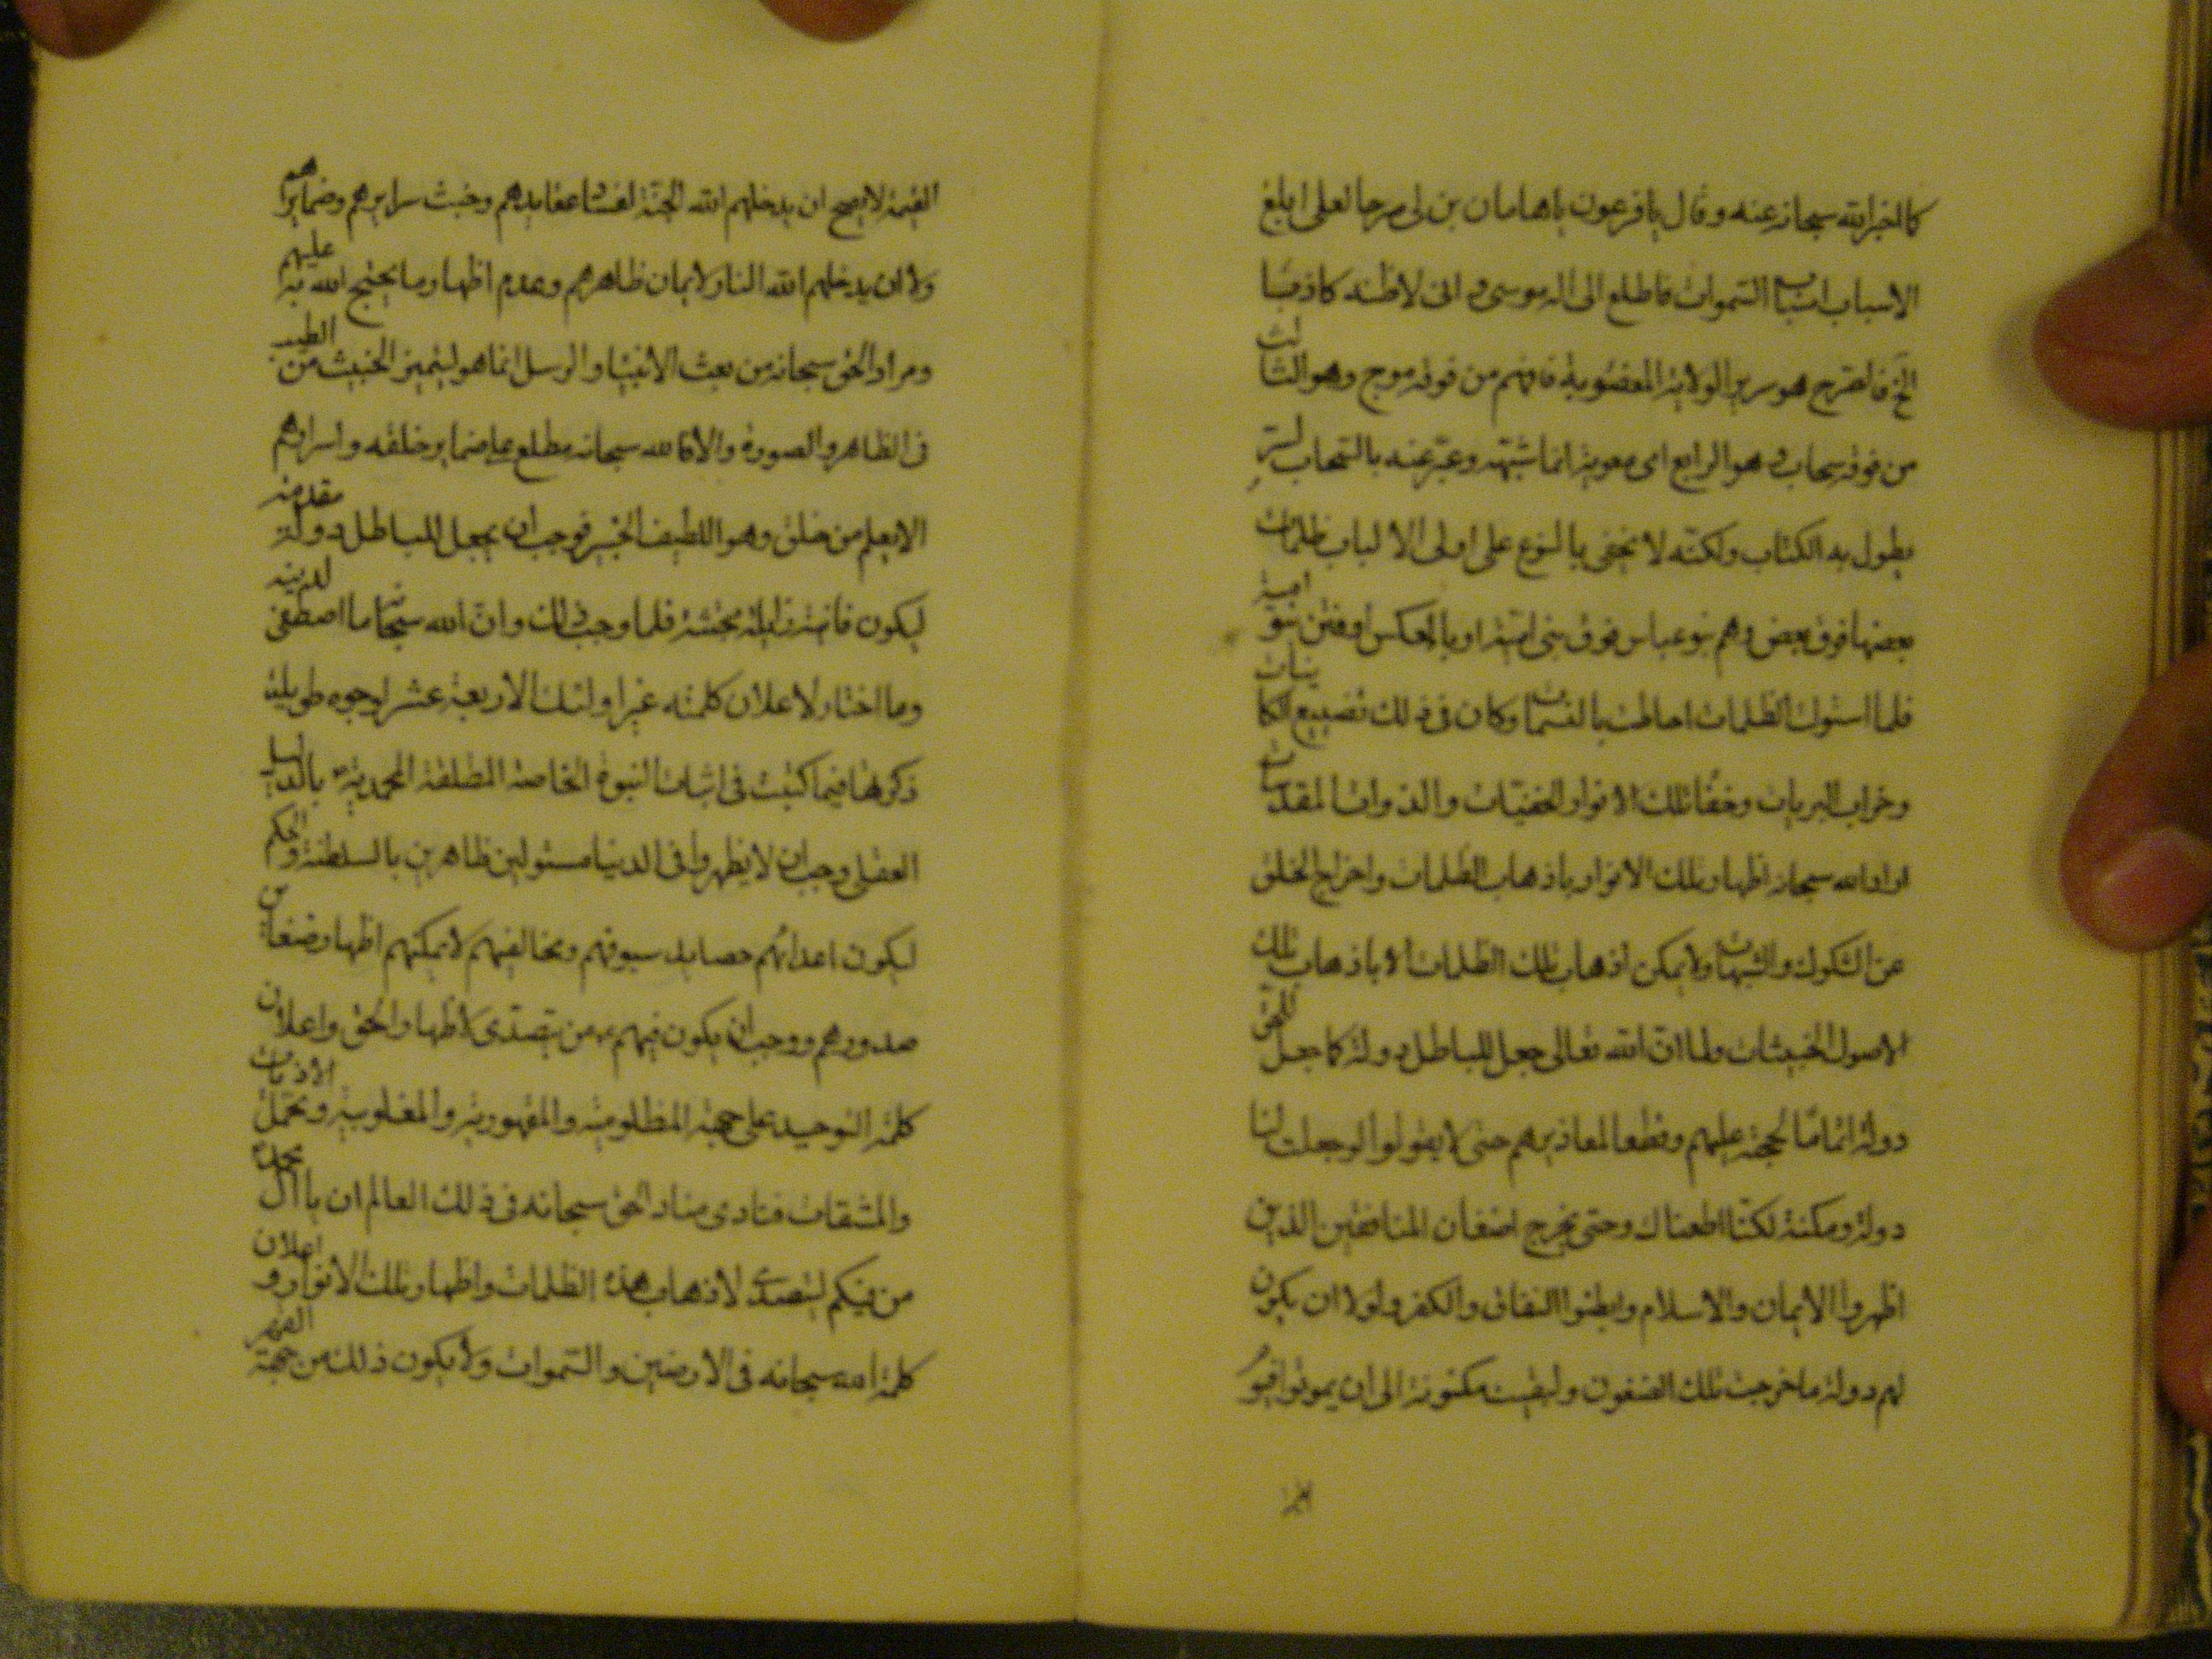 كما اخبر الله سبحانه عنه وقال يا فرعون يا هامان بن لى صرحا لعلى ابلغ
الاسباب اسباب السموات فاطلع الى اله موسى و انى لاظنه كاذبا
الخ فالصرح هو سرير الولاية المغصوبة فافهم من فوقه موج وهو الثالث
من فوقه سحاب وهو الرابع اى معوية انما شبهه وعبر عنه بالسحاب لستر
يطول به الكتاب ولكنه لا يخفى بالنوع على اولى الالباب ظلمات
بعضها فوق بعض وهم بنو عباس فوق بنى امية او بالعكس او فتن بنو امية
فلما استولت الظلمات احاطت بالقسمات وكان فى ذلك تضييع الكاينات
وخراب البريات وخفاء تلك الانوار الخفيات والذوات المقدسات
اراد الله سبحانه اظهار تلك الانوار باذهاب الظلمات واخراج الخلق
عن الشكوك والشبهات ولا يمكن اذهاب تلك الظلمات الا باذهاب تلك
الاصول الخبيثات ولما ان الله تعالى جعل للباطل دولة كما جعل للحق
دولة اتماما لحجته عليهم وقطعا لمعاذيرهم حتى لا يقولوا لو جعلت لنا
دولة ومكنة لكنا اطعناك وحتى يخرج اضغان المنافقين الذين
اظهروا الايمان والاسلام وابطنوا النفاق والكفر ولولا ان يكون
لهم دولة ما خرجت تلك الضغون ولبقيت مكنونة الى ان يموتوا فيو
القيمة لا يصح ان يدخلهم الله الجنة لفساد عقايدهم وخبث سرايرهم وضمايرهم
ولا ان يدخلهم الله النار لايمان ظاهرهم وعدم اظهار ما يحتج الله به عليهم
ومراد الحق سبحانه من بعث الانبياء والرسل انما هو ليتميز الخبيث من الطيب
فى الظاهر والصورة والا فالله سبحانه مطلع على ضماير خلقه واسرارهم
الا يعلم من خلق وهو اللطيف الخبير فوجب ان يجعل للباطل دولة مقدمة
ليكون فانية زايلة مجتثة فلما وجب ذلك وان الله سبحانه ما اصطفى لدينه
وما اختار لاعلان كلمته غير اولئك الاربعة عشر لوجوه طويلة
ذكرتها فيما كتبت فى اثبات النبوة الخاصة المطلقة المحمدية بالدليل
العقلى وجب ان لا يظهروا فى الدنيا مستولين ظاهرين بالسلطنة والحكم
ليكون اعدائهم حصايد سيوفهم ومخالفيهم لا يمكنهم اظهار ضغاين
صدورهم ووجب ان يكون فيهم من يتصدى لاظهار الحق واعلان
كلمة التوحيد على جهة المظلومية والمقهورية والمغلوبية وتحمل الاذيات
والمشقات فنادى مناد الحق سبحانه فى ذلك العالم ان يا آل محمد
من فيكم ليتصدى لاذهاب هذه الظلمات واظهار تلك الانوار و اعلان
كلمة الله سبحانه فى الارضين والسموات ولا يكون ذلك من جهة القهر